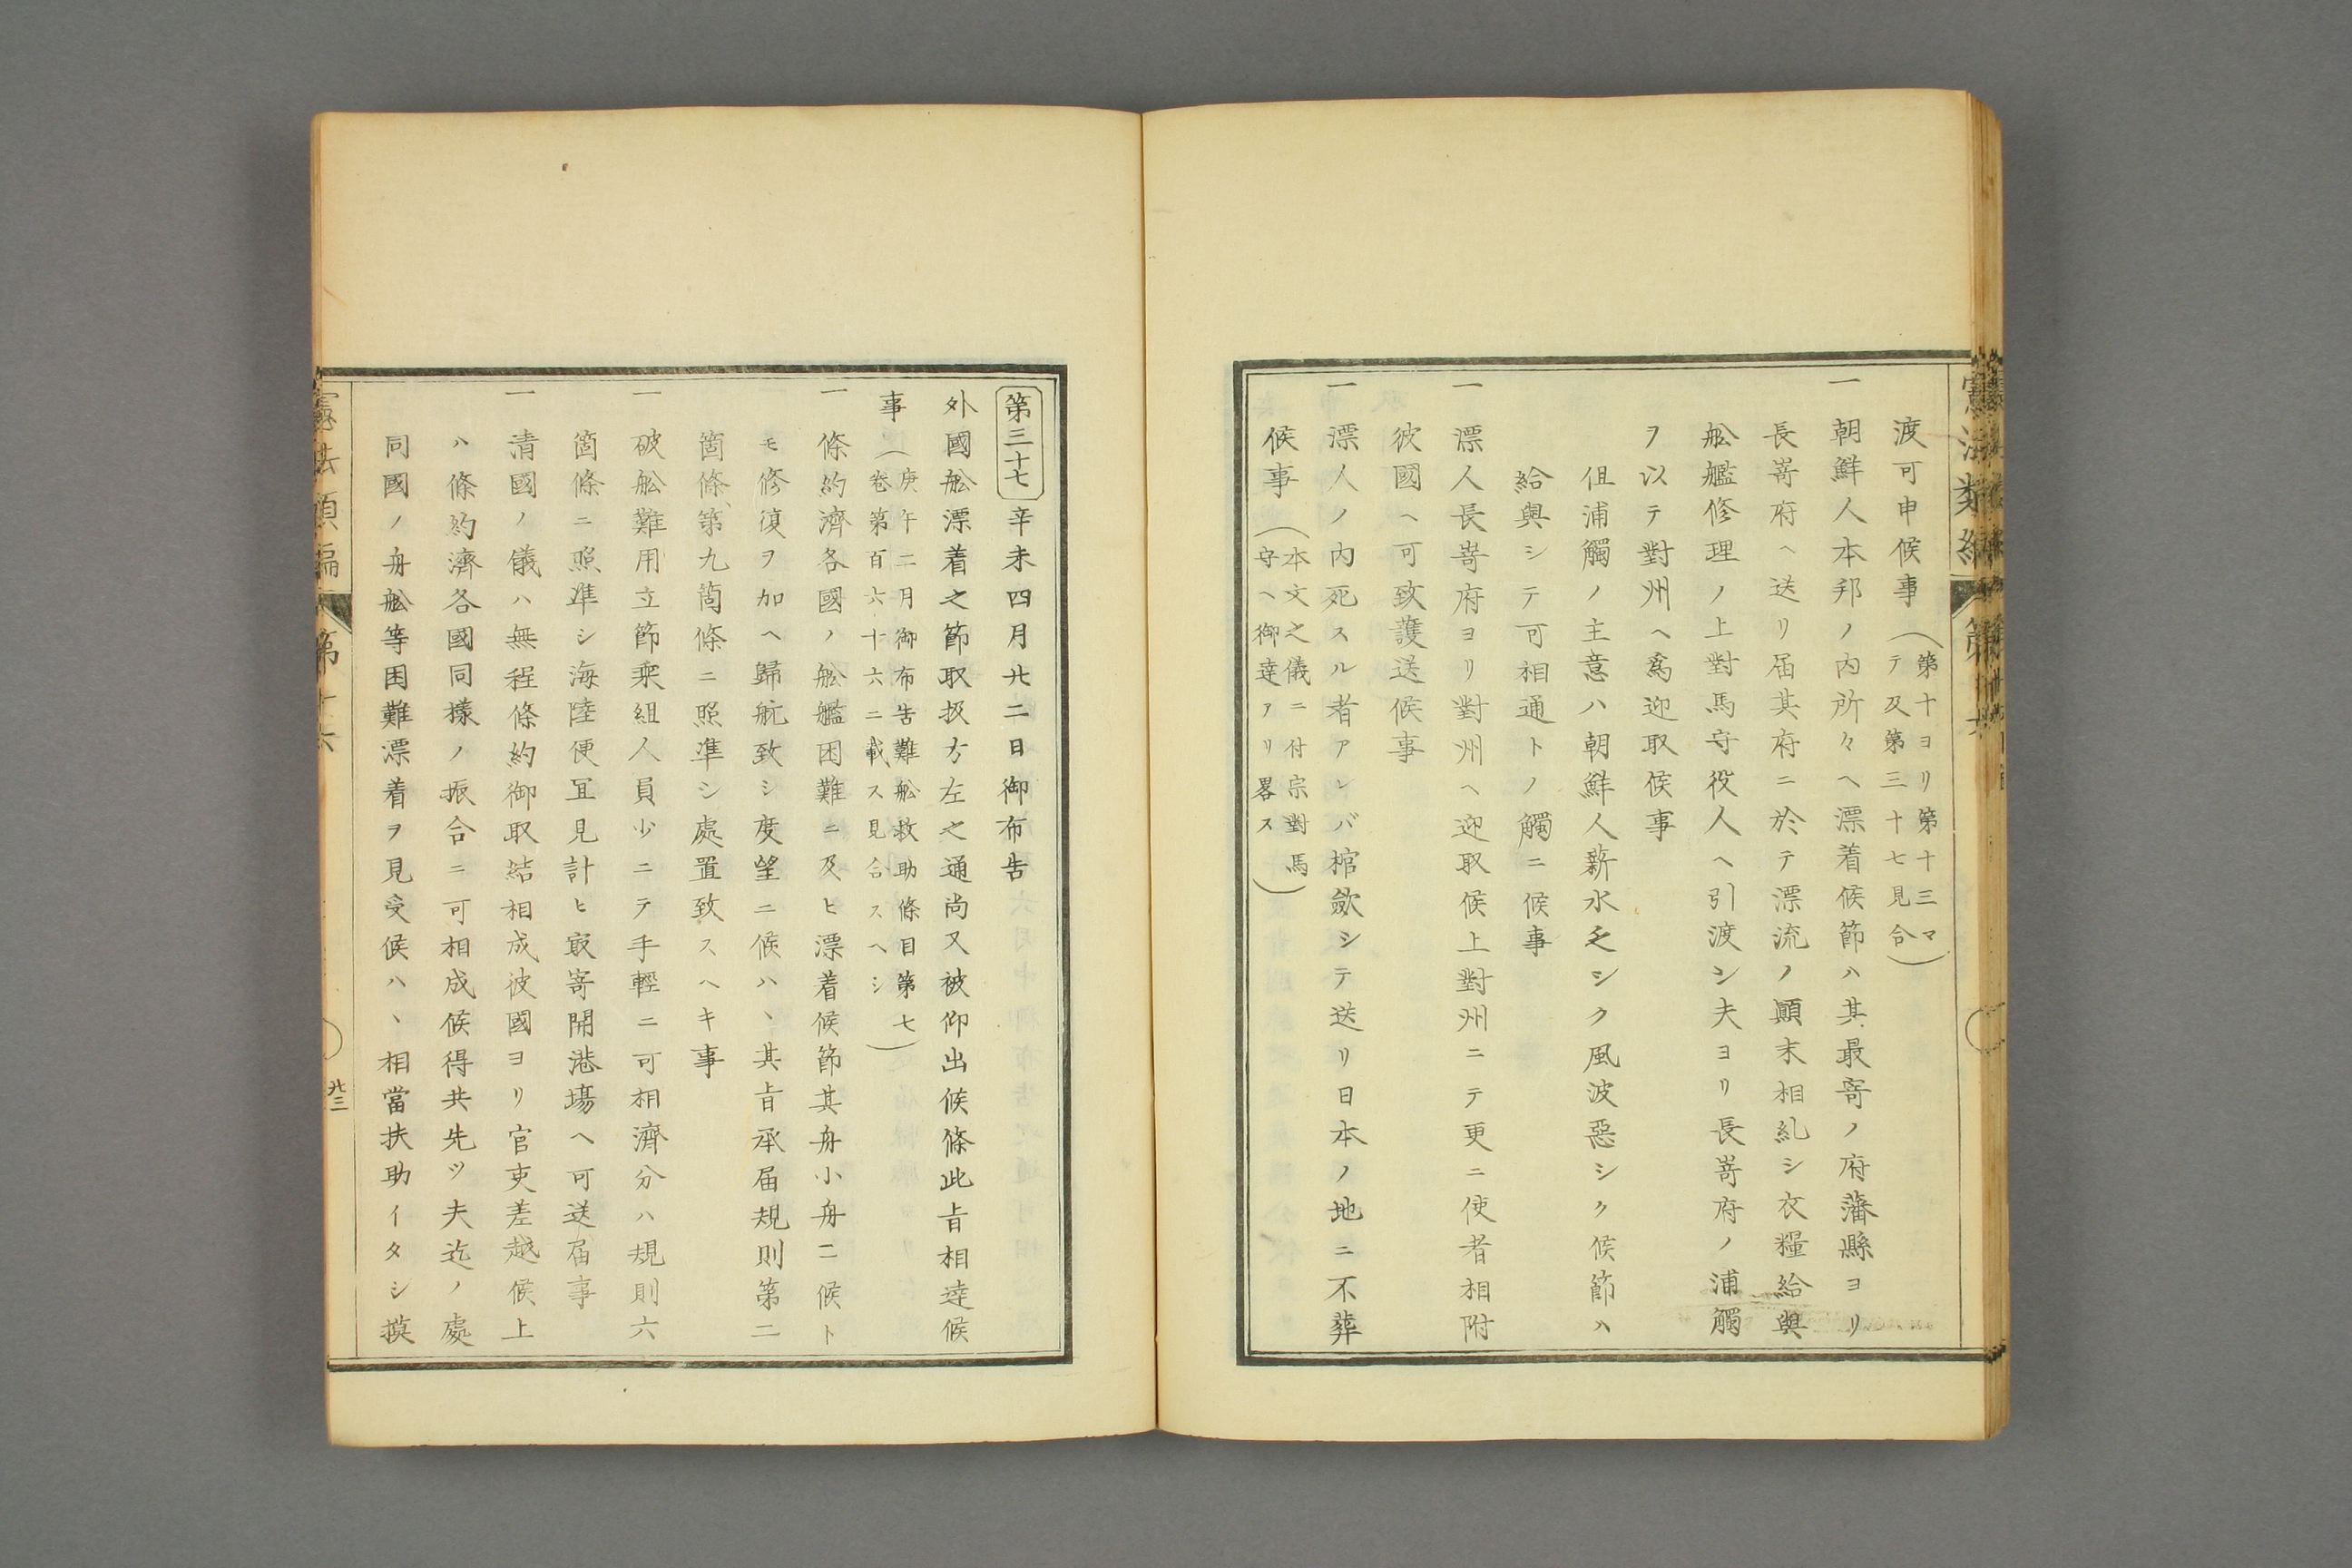 渡可申候事
(第十ヨリ第十三マ
テ及第三十七見合)
一朝鮮人本邦ノ内所々ヘ漂着候節ハ其最寄ノ府藩縣ヨリ
長嵜府ヘ送リ届其府ニ於テ漂流ノ顚末相糺シ衣糧給與
舩艦修理ノ上對馬守役人ヘ引渡シ夫ヨリ長嵜府ノ浦觸
ヲ以テ對州ヘ爲迎取候事
但浦觸ノ主意ハ朝鮮人薪水乏シク風波惡シク候節ハ
給與シテ可相通トノ觸ニ候事
一漂人長嵜府ヨリ對州ヘ迎取候上對州ニテ更ニ使者相附
彼國ヘ可致護送候事
一漂人ノ内死スル者アレバ棺歛シテ送リ日本ノ地ニ不葬
候事
(本文之儀ニ付宗對馬
守ヘ御達アリ畧ス)
第三十七 辛未四月廿二日御布告
外國舩漂着之節取扱方左之通尚又被仰出候條此旨相達候
事
(庚午二月御布告難舩救助條目第七
卷第百六十六ニ載ス見合スヘシ)
一條約濟各國ノ舩艦困難ニ及ヒ漂着候節其舟小舟ニ候ト
モ修復ヲ加ヘ歸航致シ度望ニ候ハヽ其旨承届規則第二
箇條、第九箇條ニ照準シ處置致スヘキ事
一破舩難用立節乘組人員少ニテ手輕ニ可相濟分ハ規則六
箇條ニ照準シ海陸便冝見計ヒ㝡寄開港塲ヘ可送届事
一清國ノ儀ハ無程條約御取結相成彼國ヨリ官吏差越候上
ハ條約濟各國同樣ノ振合ニ可相成候得共先ツ夫迄ノ處
同國ノ舟舩等困難漂着ヲ見受候ハヽ相當扶助イタシ摸
憲法類編 第十六
廿三